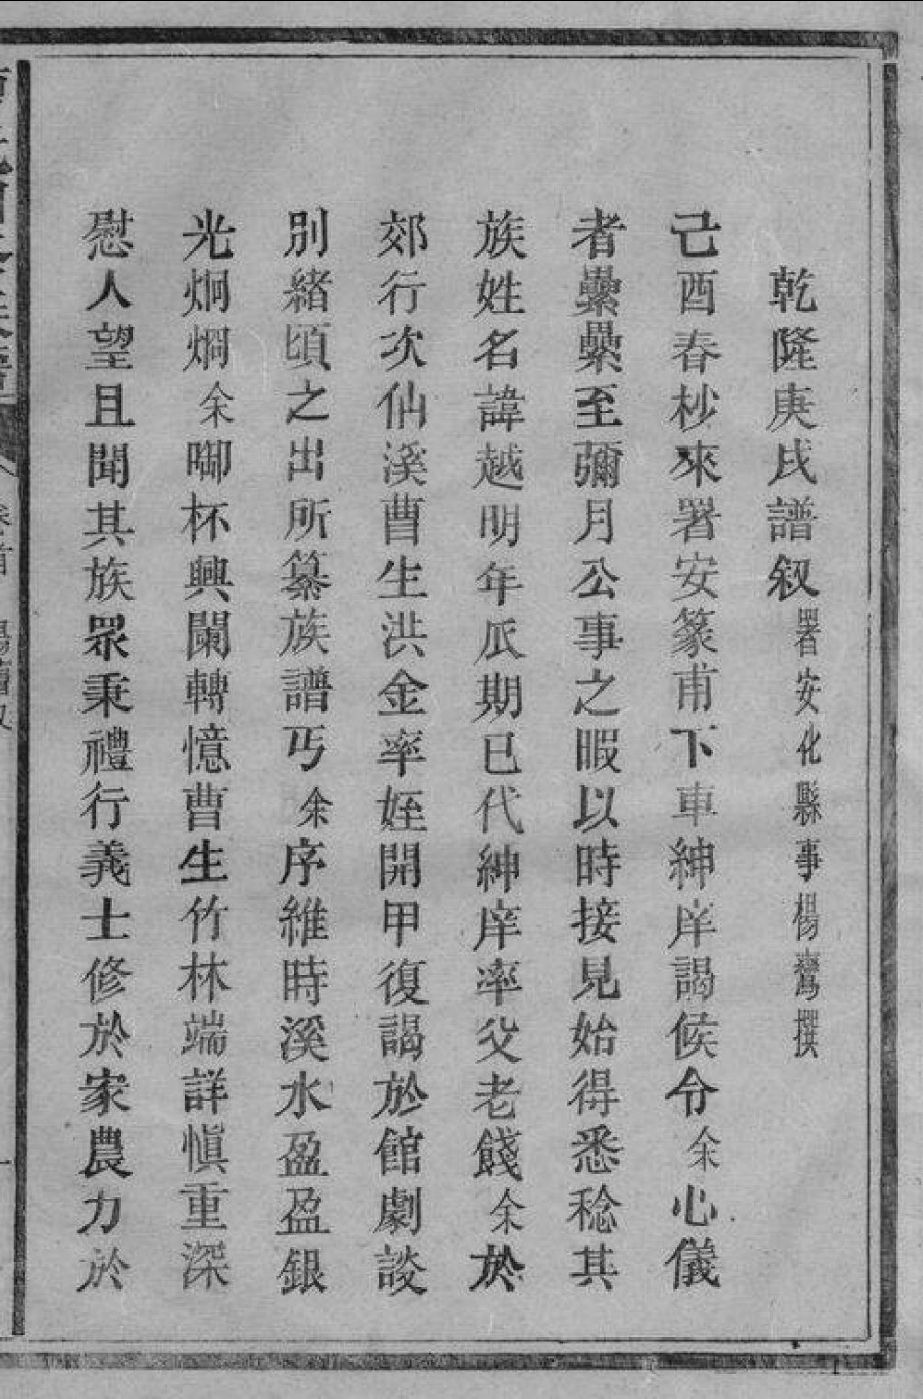 乾隆庚戌譜叙署安化縣事楊鸞撰
己酉春杪來署安篆甫下車紳庠謁候令余心儀
者纍纍至彌月公事之暇以時接見始得悉稔其
族姓名諱越明年瓜期已代紳庠率父老餞余於
郊行次仙溪曹生洪金率姪開甲復謁於館劇談
別緒頃之出所纂族譜丐余序維時溪水盈盈銀
光炯炯余啣杯興闌轉憶曹生竹林端詳慎重深
慰人望且聞其族眾秉禮行義士修於家農力於
卷首